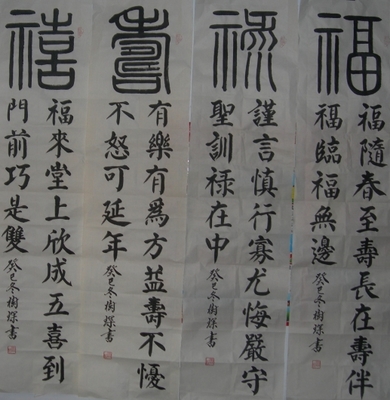 福
福隨春至壽長在壽伴
福臨福無邊
癸巳冬樹書
祿
謹言慎行寡尤悔嚴守
聖訓禄在中
癸巳冬樹書
壽
有樂有爲方益壽不憂
不怒可延年
癸巳冬樹書
禧
福來堂上欣成五喜到
門前巧是雙
癸巳冬樹書